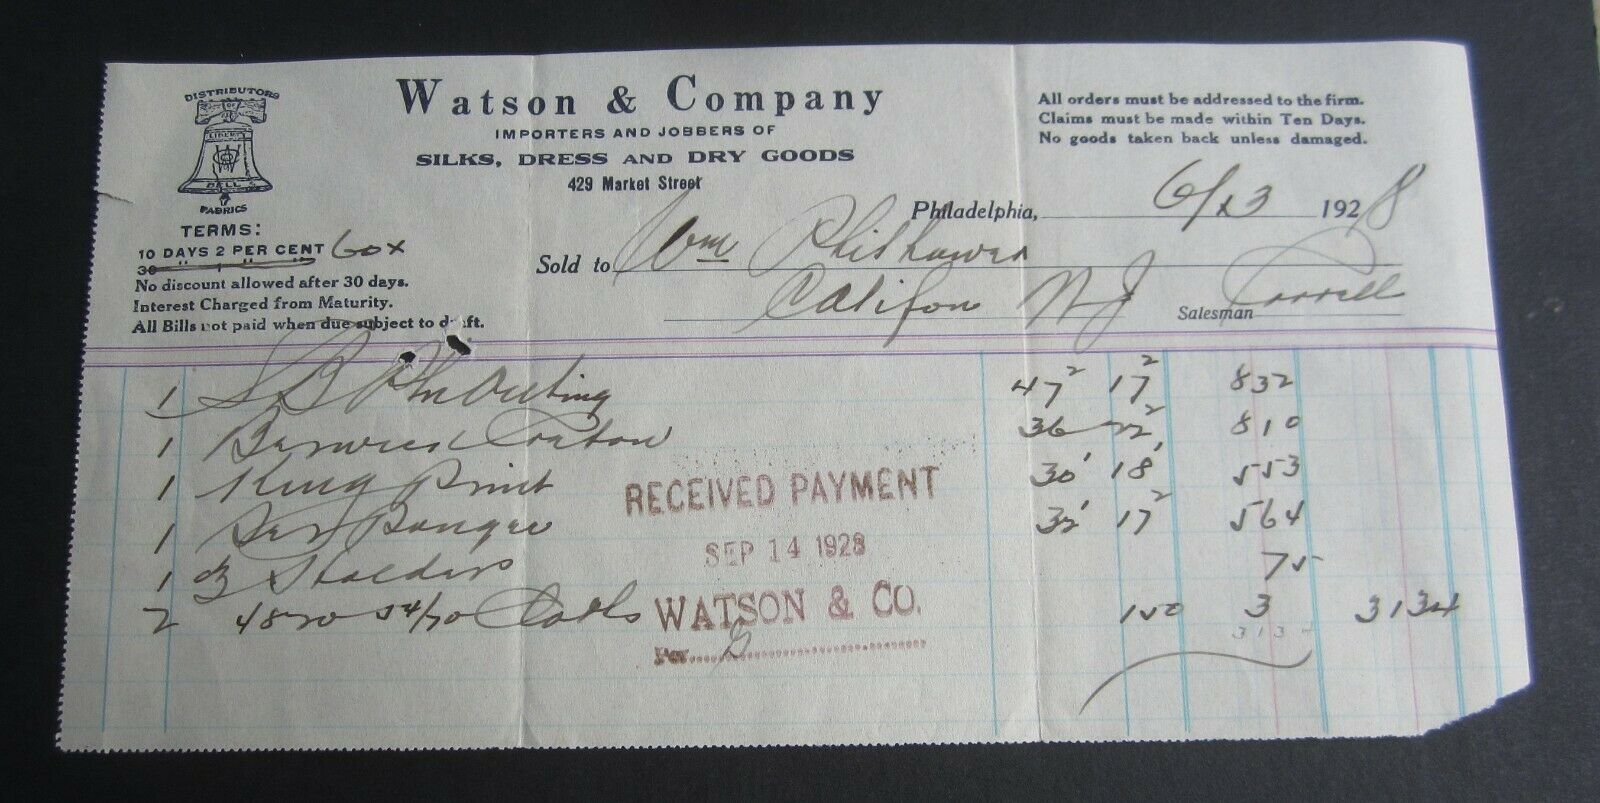 DISTRIBUTORS
OF
LIBERTY
BELL
FABRICS
Watson & Company
IMPORTERS AND JOBBERS OF
SILKS, DRESS AND DRY GOODS
429 Market Street
All orders must be addressed to the firm.
Claims must be made within Ten Days.
No goods taken back unless damaged.
Philadelphia, 6/23 1928
TERMS:
10 DAYS 2 PER CENT 60x
30 " 1 " "
No discount allowed after 30 days.
Interest Charged from Maturity.
All Bills not paid when due subject to draft.
Sold to Wm Philhower
Califon NJ
Salesman
1 SB Outing 47² 17² 832
1 36 22² 810
1 King Print 30' 18' 553
1 32' 17² 564
1 75
2 150 3 3134
3134
RECEIVED PAYMENT
SEP 14 1928
WATSON & CO.
Per